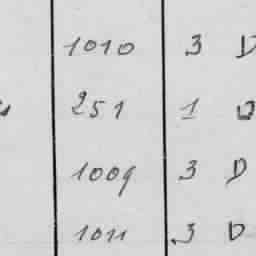 1010 3 D
251 1 D
1009 3 D
1011 3 D